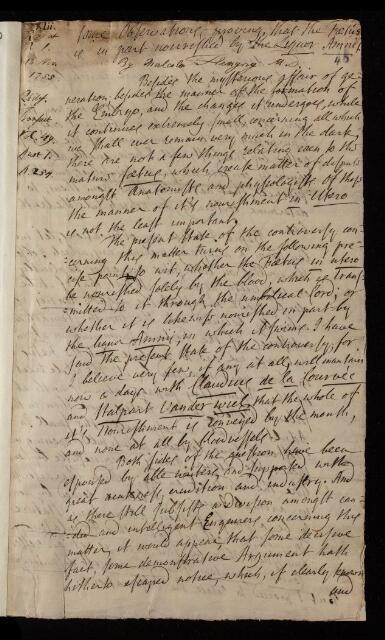 some Observations, proving, that the Foetus
is in part nourished by the Liquor Amnii
By Malcolm Flemyng M.D.
45
1755
Phil.
Transact.
Vol. 49.
Part 1.
p. 254.
Besides the mysterious affair of ge-
neration, besides the manner of the formation of
the Embryo, and the changes it undergoes, while
it continues extremely small, concerning all which
we shall ever remain very much in the dark;
there are not a few things relating even to the
mature foetus, which create matter of dispute
amongst Anatomists and physiologists. Of these
the manner of it's nourishment in Utero
is not the least important.
The present state of the controversy con-
cerning this matter turns on the following pre-
cise point, to wit, whether the Foetus in utero
be nourished solely by the blood, which is trans-
mitted to it through the umbilical Cord; or
whether it is likewise nourished in part by
the liquor Amnii, in which it swims. I have
said the present state of the controversy; for
I believe very few, if any at all, will maintain
now a days with Claudius de la Courvée
and Stalpart Vander wiel, that the whole of
it's nourishment is conveyed by the mouth,
and none at all by blood vessels.
Both sides of the question have been
espoused by able masters, and supported with
great acuteness, erudition and industry. And
as there still subsists a division amongst can-
-did and intelligent Enquirers concerning this
matter, it would appear that some decisive
fact, some demonstrative Argument hath
hitherto escaped notice, which, if clearly known
and